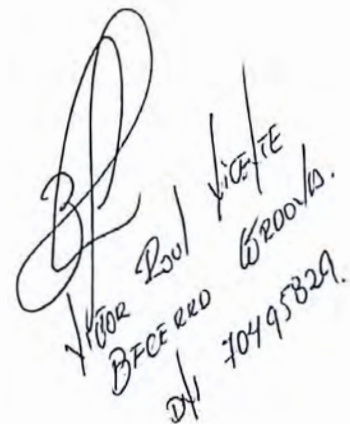 VÍCTOR RAUL VICENTE
BECERRO CORDOVA.
DNI 70495829.